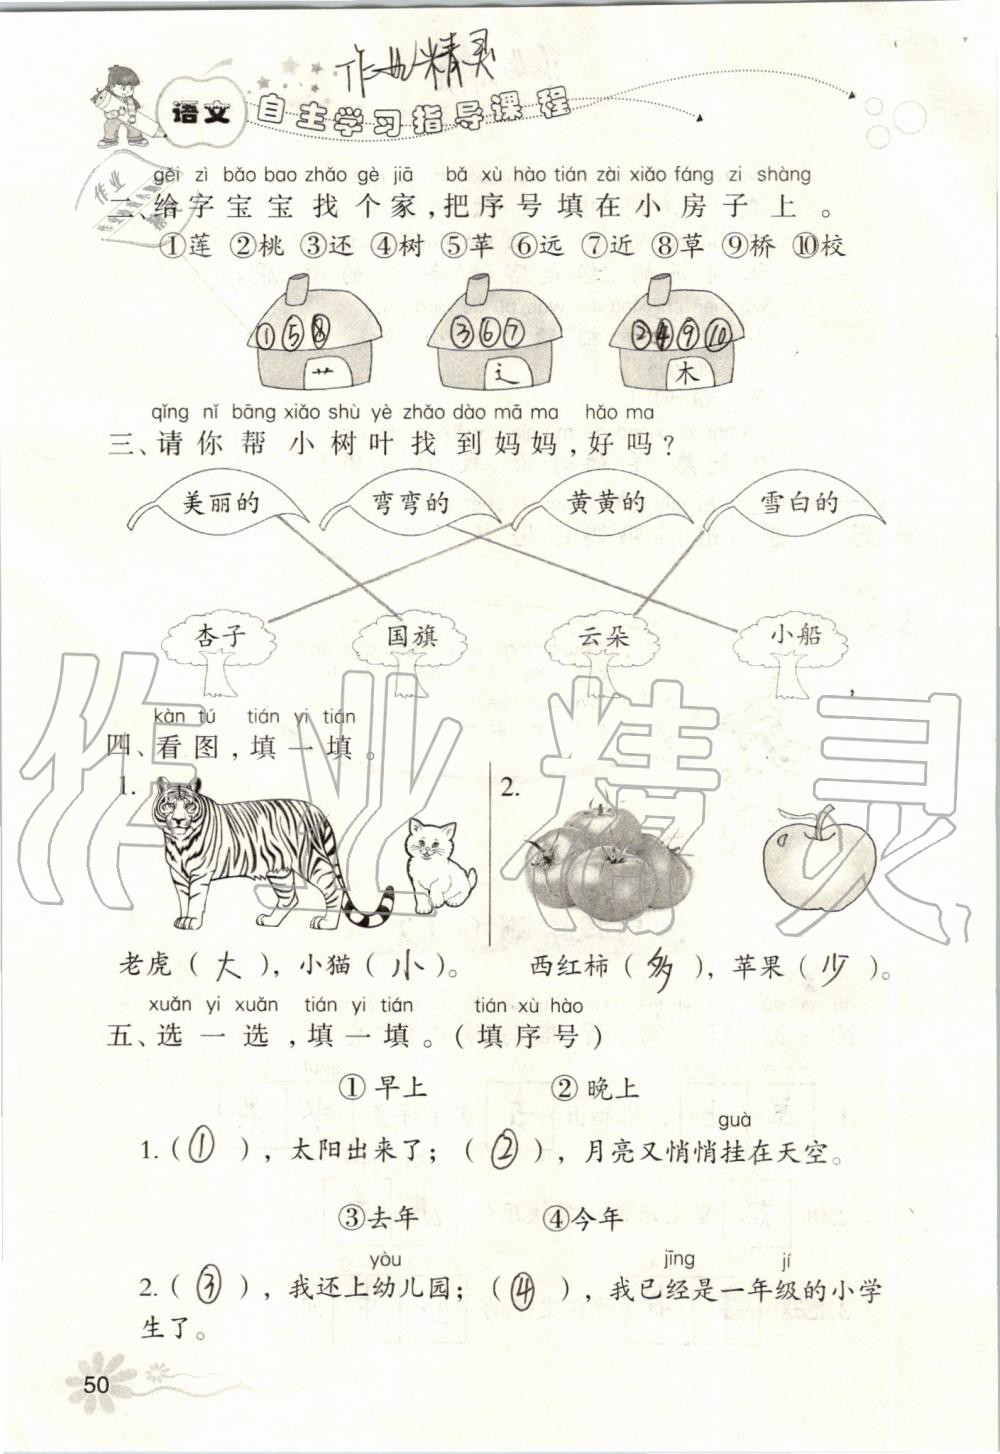 作业精灵
语文 自主学习指导课程
作业
gěi zì bǎo bao zhǎo gè jiā bǎ xù hào tián zài xiǎo fáng zi shàng
二、给字宝宝找个家,把序号填在小房子上。
①莲 ②桃 ③还 ④树 ⑤苹 ⑥远 ⑦近 ⑧草 ⑨桥 ⑩校
①⑤⑧ ③⑥⑦ ②④⑨⑩
艹 辶 木
qǐng nǐ bāng xiǎo shù yè zhǎo dào mā ma hǎo ma
三、请你帮小树叶找到妈妈,好吗?
美丽的 弯弯的 黄黄的 雪白的
杏子 国旗 云朵 小船
kàn tú tián yi tián
四、看图,填一填。
1. 2.
老虎(大),小猫(小)。 西红柿(多),苹果(少)。
xuǎn yi xuǎn tián yi tián tián xù hào
五、选一选,填一填。(填序号)
①早上 ②晚上
guà
1.(①),太阳出来了;(②),月亮又悄悄挂在天空。
③去年 ④今年
yòu jīng jí
2.(③),我还上幼儿园;(④),我已经是一年级的小学
生了。
50
作业精灵